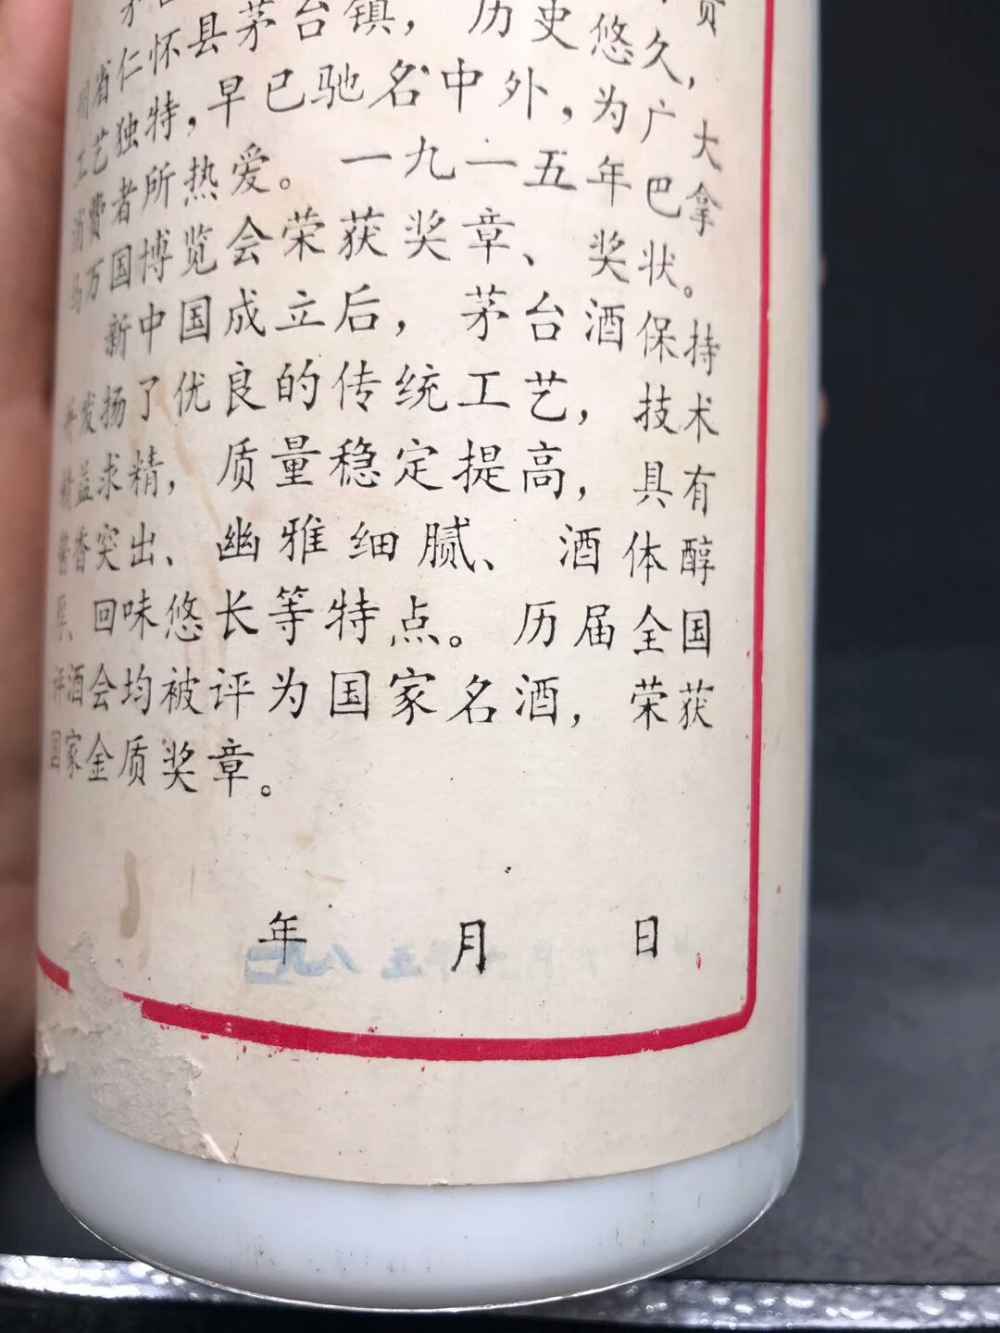 茅 贵
州省仁怀县茅台镇，历史悠久，
工艺独特，早已驰名中外，为广大
消费者所热爱。一九一五年巴拿
马万国博览会荣获奖章、奖状。
新中国成立后，茅台酒保持
并发扬了优良的传统工艺，技术
精益求精，质量稳定提高，具有
酱香突出、幽雅细腻、酒体醇
厚、回味悠长等特点。历届全国
评酒会均被评为国家名酒，荣获
国家金质奖章。
年 月 日
一九八五年